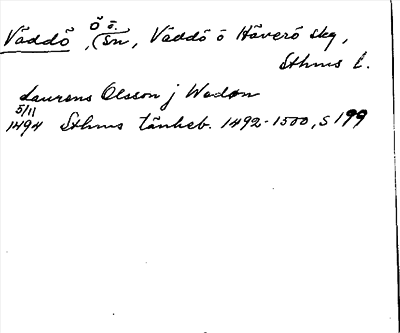 Väddö, Ö o. (sn, Väddö o Häverö skg,
Sthms l.
Laurens Olsson j Wadøn
5/11
1494 Sthms tänkeb. 1492-1500, s 199